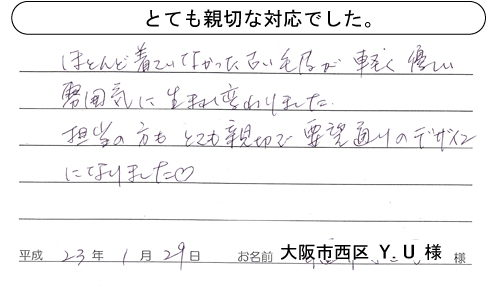 とても親切な対応でした。
ほとんど着ていなかった古い毛皮が軽く優しい
雰囲気に生まれ変わりました。
担当の方もとても親切で要望通りのデザイン
になりました♡
平成 23年 1月 29日 お名前 大阪市西区 Y.U 様 様